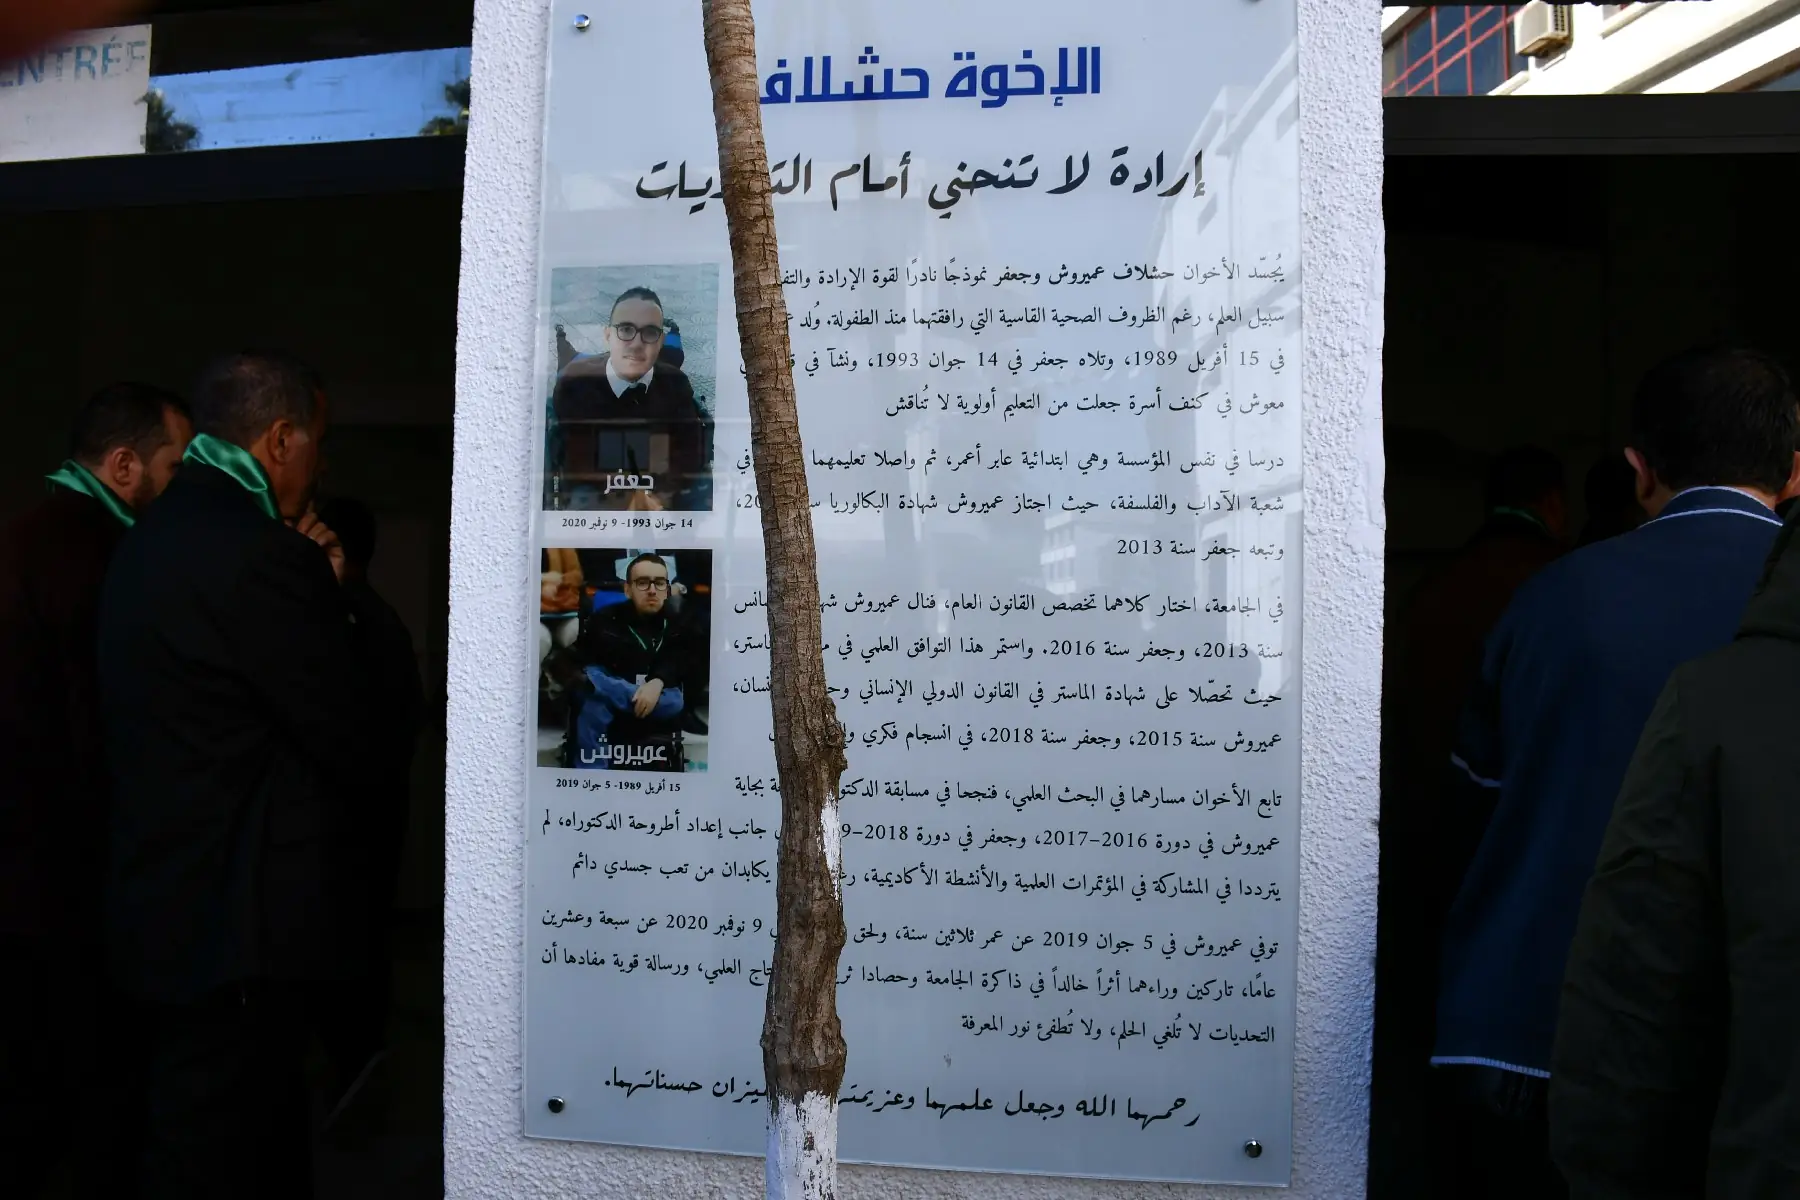 ENTRÉE
الإخوة حشلاف
إرادة لا تنحني أمام
يُجسّد الأخوان حشلاف عميروش وجعفر نموذجًا نادرًا لقوة الإرادة
سبيل العلم، رغم الظروف الصحية القاسية التي رافقتهما منذ الطفولة. وُلد
في 15 أفريل 1989، وتلاه جعفر في 14 جوان 1993، ونشآ في
معوش في كنف أسرة جعلت من التعليم أولوية لا تُناقش
درسا في نفس المؤسسة وهي ابتدائية عابر أعمر، ثم واصلا تعليمهما في
شعبة الآداب والفلسفة، حيث اجتاز عميروش شهادة البكالوريا
وتبعه جعفر سنة 2013
في الجامعة، اختار كلاهما تخصص القانون العام، فنال عميروش
سنة 2013، وجعفر سنة 2016. واستمر هذا التوافق العلمي في
حيث تحصّلا على شهادة الماستر في القانون الدولي الإنساني
عميروش سنة 2015، وجعفر سنة 2018، في انسجام فكري
تابع الأخوان مسارهما في البحث العلمي، فنجحا في مسابقة بجاية
عميروش في دورة 2016-2017، وجعفر في دورة 2018- جانب إعداد أطروحة الدكتوراه، لم
يترددا في المشاركة في المؤتمرات العلمية والأنشطة الأكاديمية، يكابدان من تعب جسدي دائم
توفي عميروش في 5 جوان 2019 عن عمر ثلاثين سنة، ولحق 9 نوفمبر 2020 عن سبعة وعشرين
عامًا، تاركين وراءهما أثراً خالداً في ذاكرة الجامعة وحصادا العلمي، ورسالة قوية مفادها أن
التحديات لا تُلغي الحلم، ولا تُطفئ نور المعرفة
رحمهما الله وجعل علمهما حسناتهما.
جعفر
14 جوان 1993- 9 نوفمبر 2020
عميروش
15 أفريل 1989- 5 جوان 2019